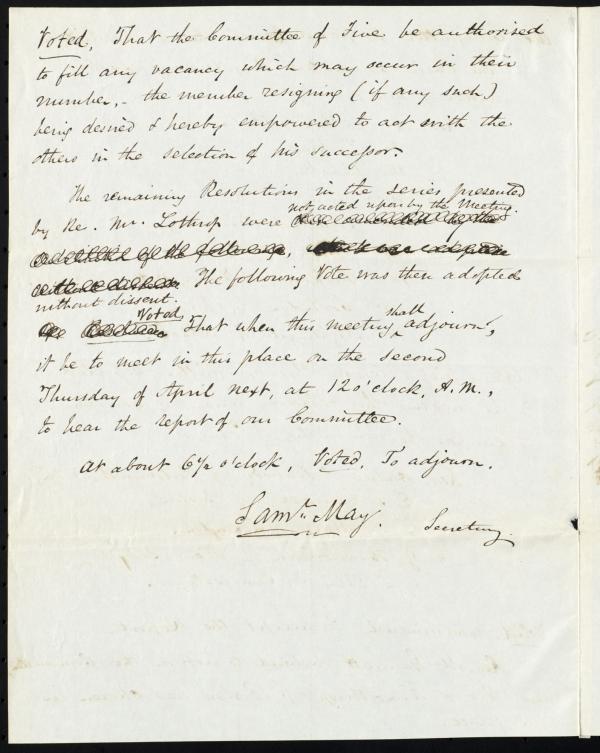 Voted, That the Committee of Five be authorised
to fill any vacancy which may occur in their
number,- the member resigning (if any such)
being desired & hereby empowered to act with the
others in the selection of his successor.
The remaining Resolutions in the series presented
not acted upon by the Meeting.
by Re. Mr. Lothrop were
The following Vote was then adopted
without dissent.
Voted shall
That when this meeting adjourn,
it be to meet in this place on the second
Thursday of April next, at 12 o'clock, A.M.,
to hear the report of our Committee.
At about 6½ o'clock, Voted, To adjourn.
Saml. May. Secretary.